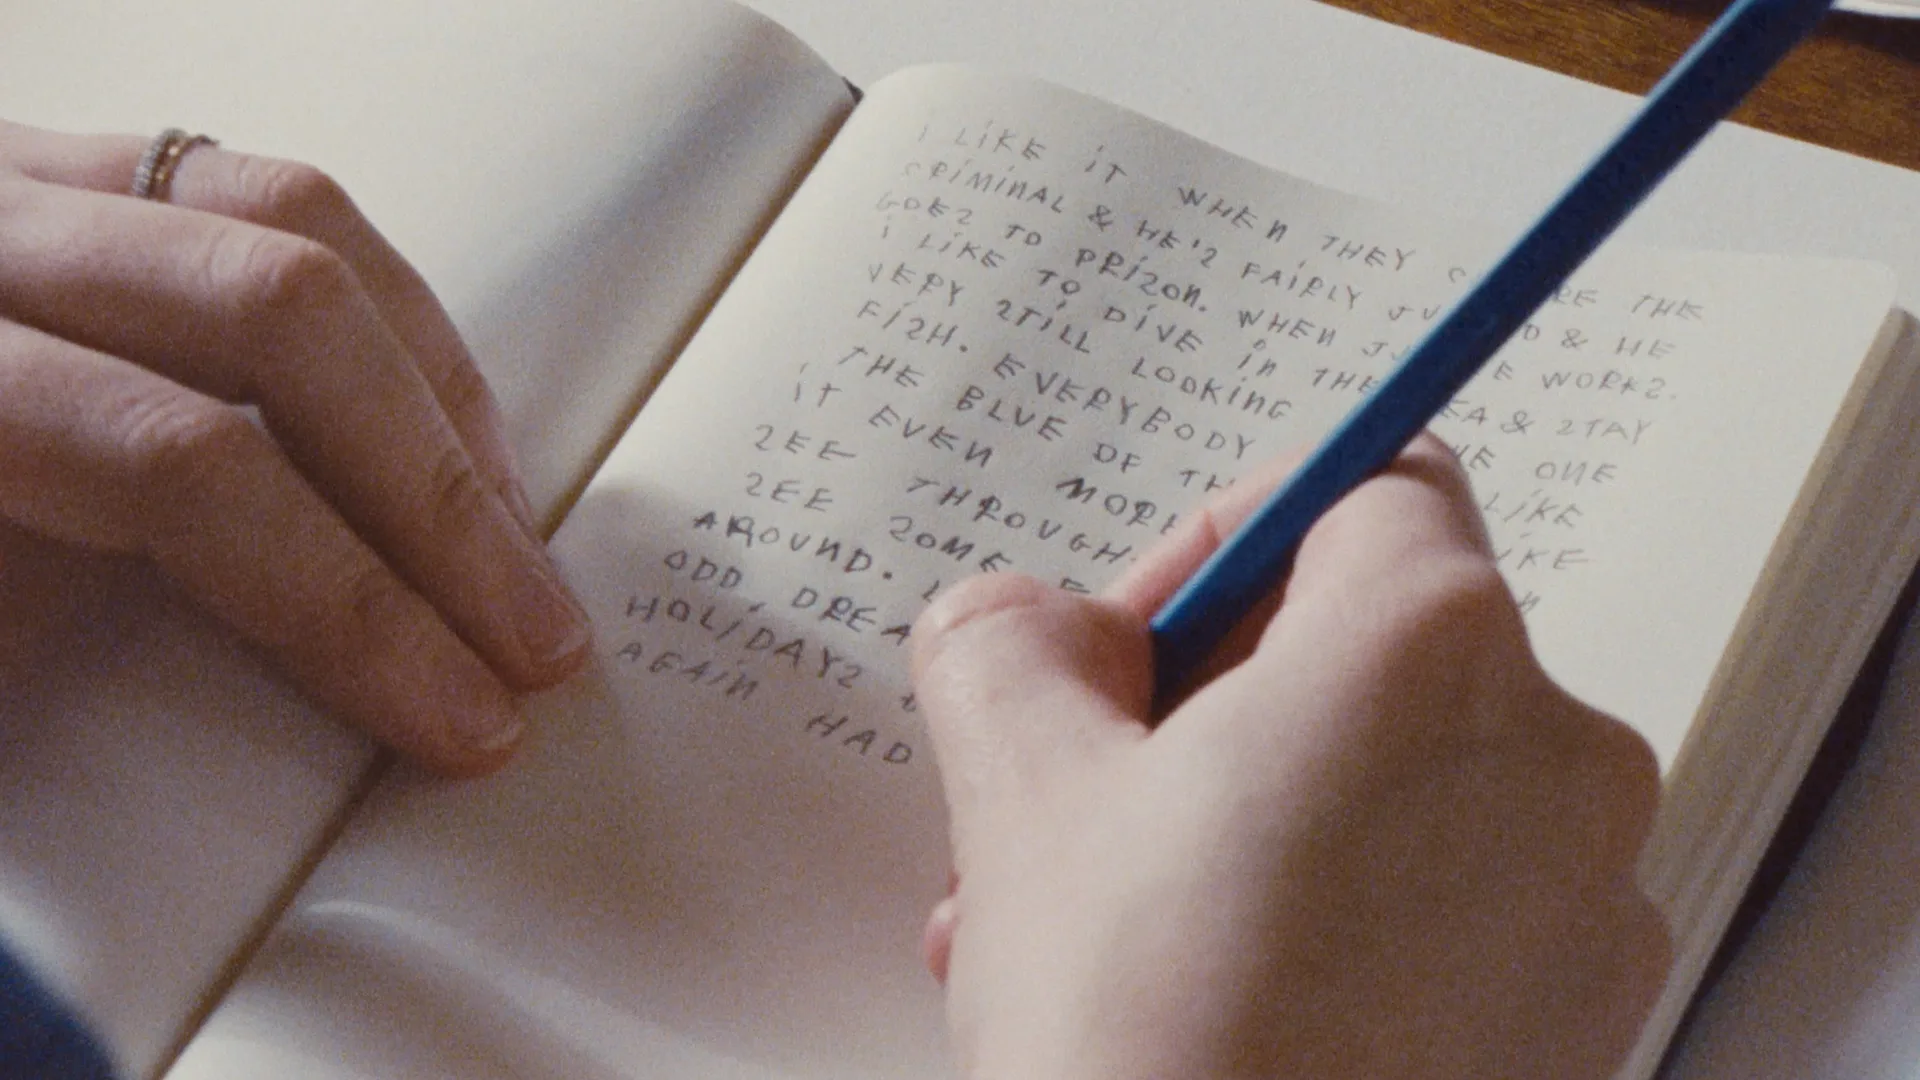 i LiKE iT WHEN THEY THE
CRiMiNAL & HE'S FAiRLY & HE
GOES TO PRiSON. WHEN WORKS.
i LiKE TO DiVE iN THE & STAY
VERY STiLL LOOKiNG ONE
FiSH. EVERYBODY LiKE
THE BLUE OF
iT EVEN MORE
SEE THROUGH.
SEE SOME
AROUND.
ODD
HOLiDAYS
AGAiN HAD